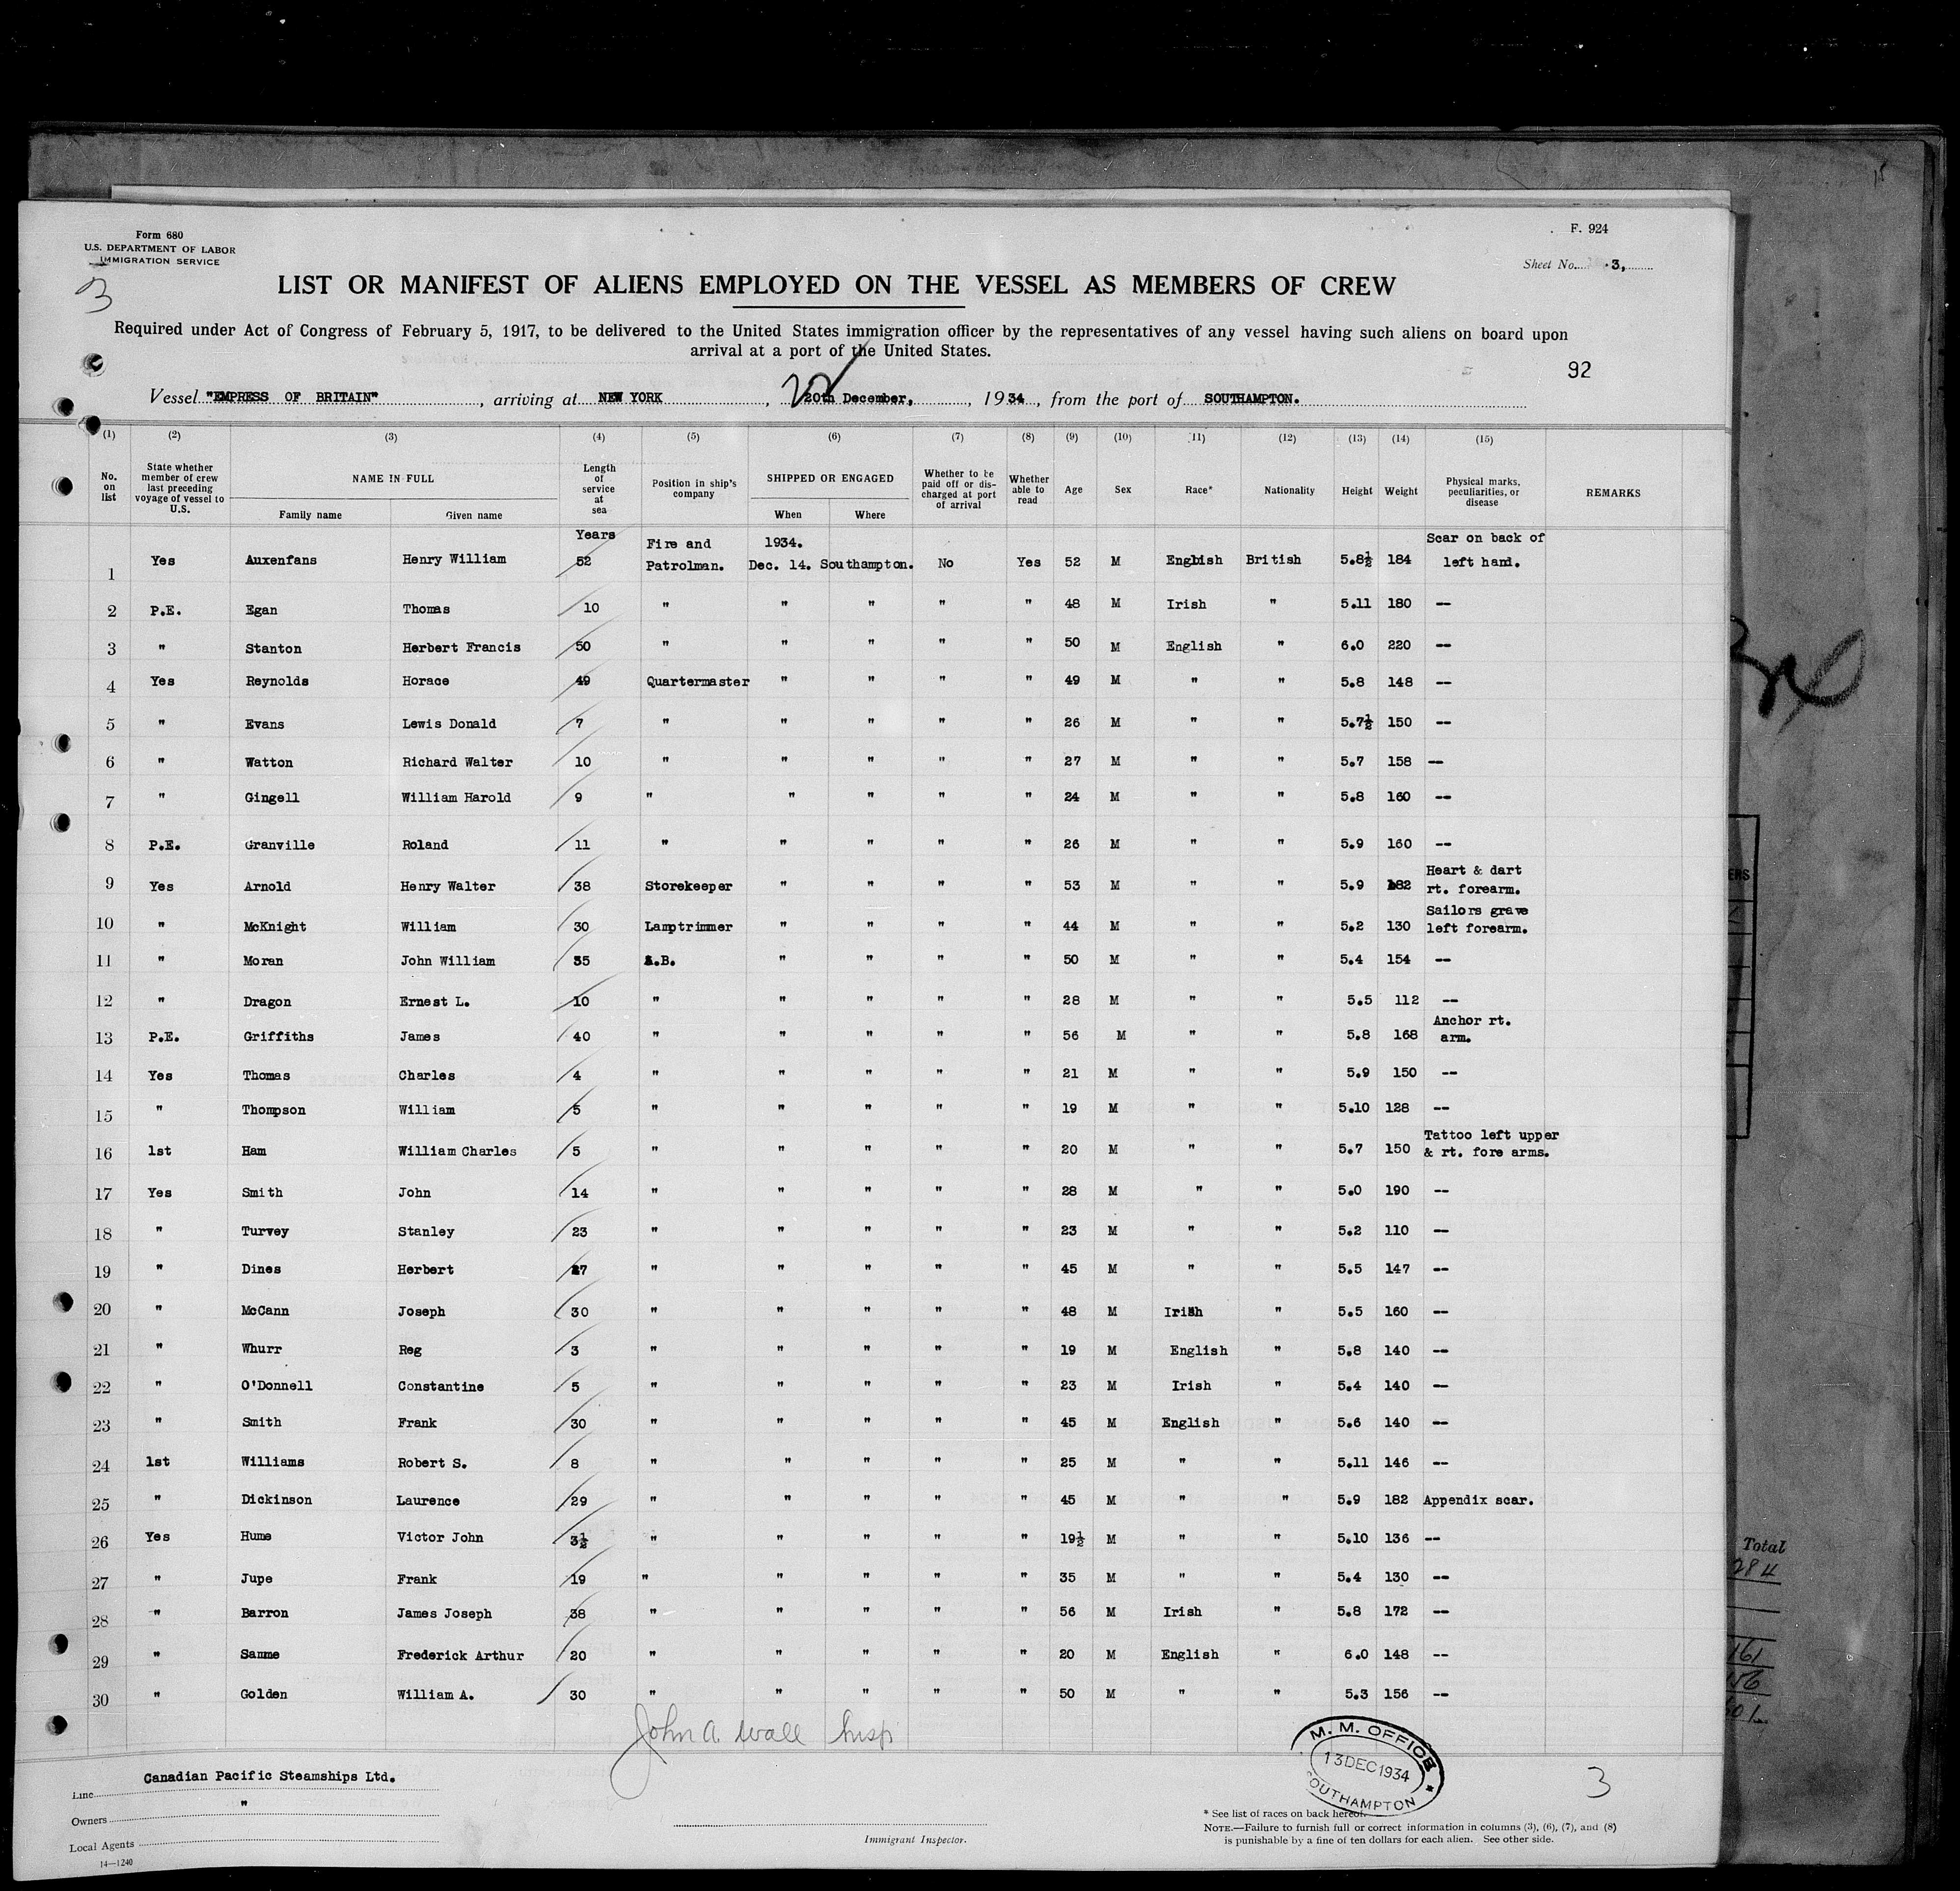 Form 680
U.S. DEPARTMENT OF LABOR
IMMIGRATION SERVICE
F. 924
Sheet No. 3,
3
LIST OR MANIFEST OF ALIENS EMPLOYED ON THE VESSEL AS MEMBERS OF CREW
Required under Act of Congress of February 5, 1917, to be delivered to the United States immigration officer by the representatives of any vessel having such aliens on board upon
arrival at a port of the United States.
92
Vessel "EMPRESS OF BRITAIN", arriving at NEW YORK, 20th December, 1934, from the port of SOUTHAMPTON.
(1) (2) (3) (4) (5) (6) (7) (8) (9) (10) (11) (12) (13) (14) (15)
No. on list | State whether member of crew last preceding voyage of vessel to U.S. | NAME IN FULL | Family name | Given name | Length of service at sea | Position in ship's company | SHIPPED OR ENGAGED | When | Where | Whether to be paid off or discharged at port of arrival | Whether able to read | Age | Sex | Race* | Nationality | Height | Weight | Physical marks, peculiarities, or disease | REMARKS
1 Yes Auxenfans Henry William Years 52 Fire and Patrolman. 1934. Dec. 14. Southampton. No Yes 52 M English British 5.8½ 184 Scar on back of left hand.
2 P.E. Egan Thomas 10 " " " " " 48 M Irish " 5.11 180 --
3 " Stanton Herbert Francis 50 " " " " " 50 M English " 6.0 220 --
4 Yes Reynolds Horace 49 Quartermaster " " " " 49 M " " 5.8 148 --
5 " Evans Lewis Donald 7 " " " " " 26 M " " 5.7½ 150 --
6 " Watton Richard Walter 10 " " " " " 27 M " " 5.7 158 --
7 " Gingell William Harold 9 " " " " " 24 M " " 5.8 160 --
8 P.E. Granville Roland 11 " " " " " 26 M " " 5.9 160 --
9 Yes Arnold Henry Walter 38 Storekeeper " " " " 53 M " " 5.9 182 Heart & dart rt. forearm.
10 " McKnight William 30 Lamptrimmer " " " " 44 M " " 5.2 130 Sailors grave left forearm.
11 " Moran John William 35 A.B. " " " " 50 M " " 5.4 154 --
12 " Dragon Ernest L. 10 " " " " " 28 M " " 5.5 112 --
13 P.E. Griffiths James 40 " " " " " 56 M " " 5.8 168 Anchor rt. arm.
14 Yes Thomas Charles 4 " " " " " 21 M " " 5.9 150 --
15 " Thompson William 5 " " " " " 19 M " " 5.10 128 --
16 1st Ham William Charles 5 " " " " " 20 M " " 5.7 150 Tattoo left upper & rt. fore arms.
17 Yes Smith John 14 " " " " " 28 M " " 5.0 190 --
18 " Turvey Stanley 23 " " " " " 23 M " " 5.2 110 --
19 " Dines Herbert 27 " " " " " 45 M " " 5.5 147 --
20 " McCann Joseph 30 " " " " " 48 M Irish " 5.5 160 --
21 " Whurr Reg 3 " " " " " 19 M English " 5.8 140 --
22 " O'Donnell Constantine 5 " " " " " 23 M Irish " 5.4 140 --
23 " Smith Frank 30 " " " " " 45 M English " 5.6 140 --
24 1st Williams Robert S. 8 " " " " " 25 M " " 5.11 146 --
25 " Dickinson Laurence 29 " " " " " 45 M " " 5.9 182 Appendix scar.
26 Yes Hume Victor John 3½ " " " " " 19½ M " " 5.10 136 --
27 " Jupe Frank 19 " " " " " 35 M " " 5.4 130 --
28 " Barron James Joseph 38 " " " " " 56 M Irish " 5.8 172 --
29 " Samme Frederick Arthur 20 " " " " " 20 M English " 6.0 148 --
30 " Golden William A. 30 " " " " " 50 M " " 5.3 156 --
John A. Wall Insp
M. M. OFFICE
13 DEC 1934
SOUTHAMPTON
3
Line Canadian Pacific Steamships Ltd.
Owners "
Local Agents
Immigrant Inspector.
14—1240
* See list of races on back hereof.
NOTE.—Failure to furnish full or correct information in columns (3), (6), (7), and (8)
is punishable by a fine of ten dollars for each alien. See other side.
Total
284
161